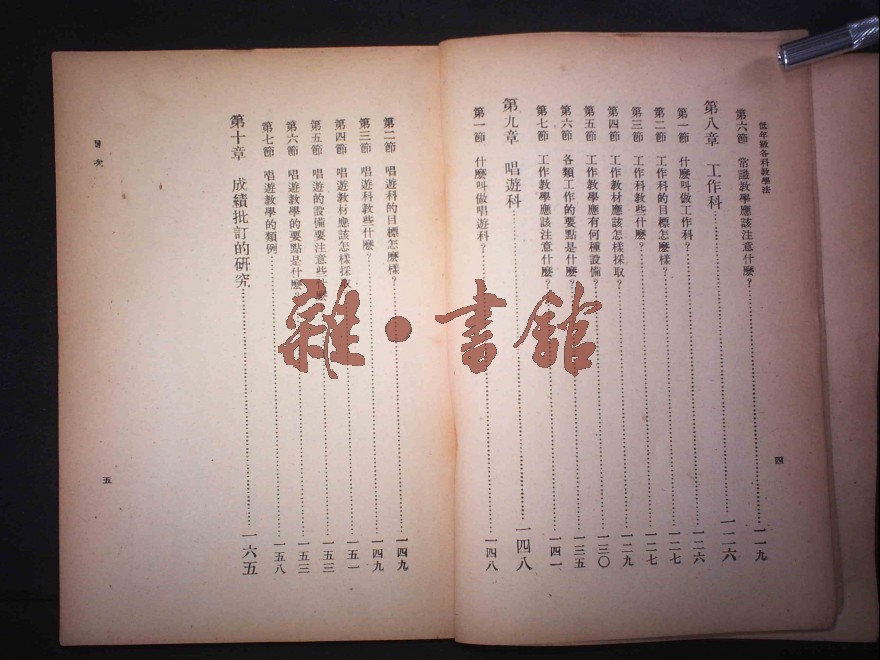 低年級各科教學法
第六節 常識教學應該注意什麼?……一一九
第八章 工作科……一二六
第一節 什麼叫做工作科?……一二六
第二節 工作科的目標怎麼樣?……一二七
第三節 工作科教些什麼?……一二七
第四節 工作教材應該怎樣採取?……一二九
第五節 工作教學應有何種設備?……一三〇
第六節 各類工作的要點是什麼?……一三五
第七節 工作教學應該注意什麼?……一四一
第九章 唱遊科……一四八
第一節 什麼叫做唱遊科?……一四八
四
第二節 唱遊科的目標怎麼樣?……一四九
第三節 唱遊科教些什麼?……一四九
第四節 唱遊教材應該怎樣採取……一五一
第五節 唱遊的設備要注意些什麼……一五三
第六節 唱遊教學的要點是什麼……一五三
第七節 唱遊教學的類例……一五八
第十章 成績批訂的研究……一六五
目次
五
雜·書館